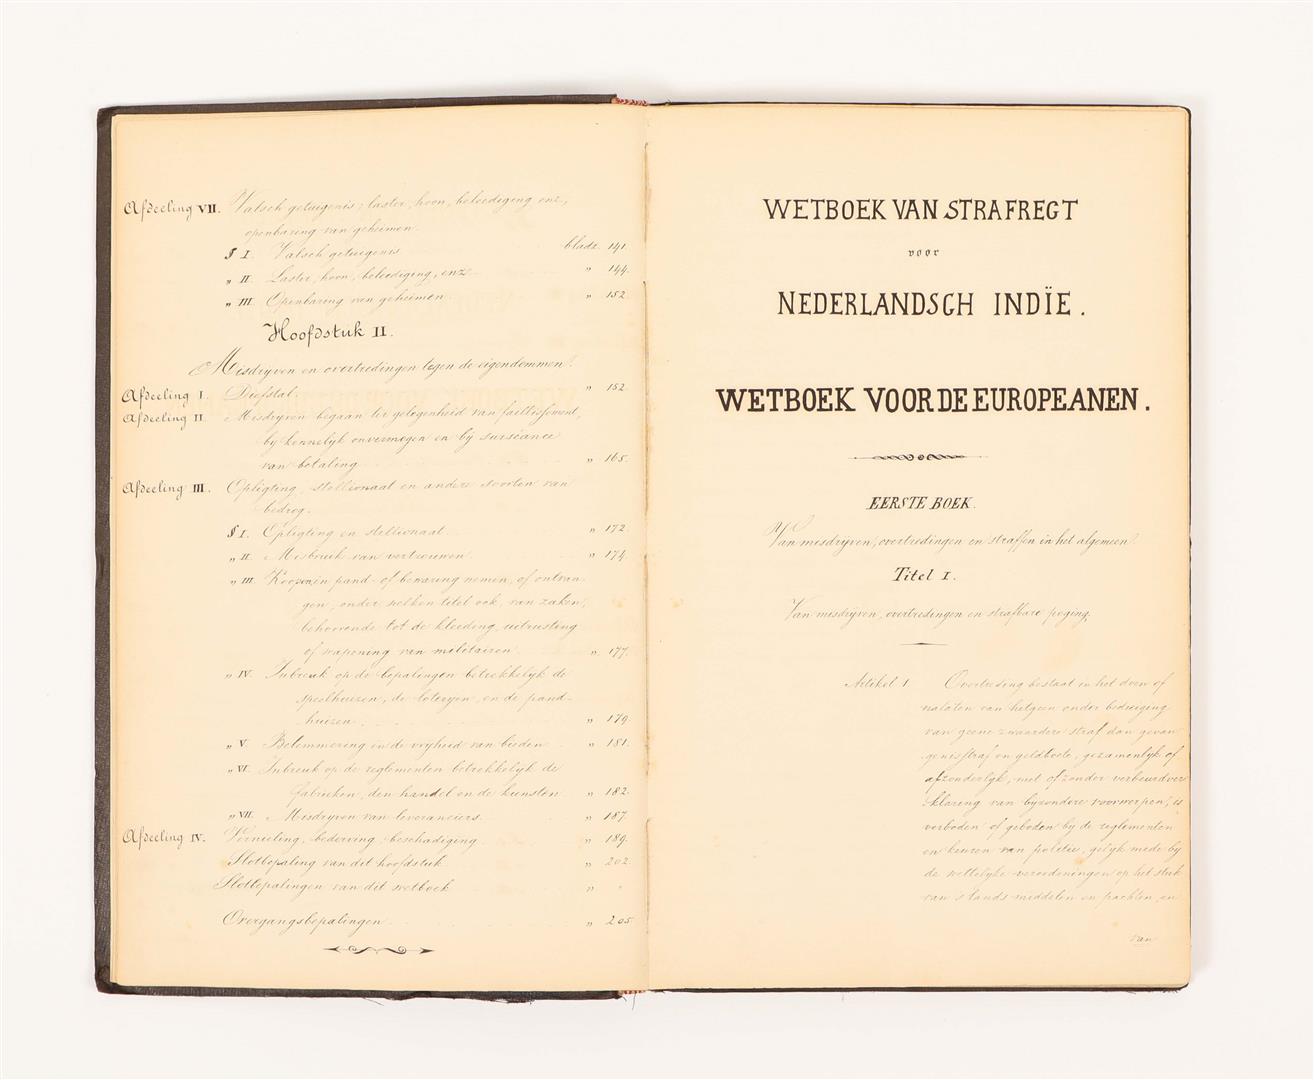 Afdeeling VII. Valsch getuigenis; laster, hoon, beleediging enz.,
openbaring van geheimen.
§ I. Valsch getuigenis bladz. 141.
„ II. Laster, hoon, beleediging, enz. „ 144.
„ III. Openbaring van geheimen „ 152.
Hoofdstuk II.
Misdrijven en overtredingen tegen de eigendommen.
Afdeeling I. Diefstal. „ 152.
Afdeeling II. Misdrijven begaan ter gelegenheid van faillissement,
bij kennelijk onvermogen en bij surséance
van betaling „ 165.
Afdeeling III. Opligting, stellionaat en andere soorten van
bedrog.
§ I. Opligting en stellionaat. „ 172.
„ II. Misbruik van vertrouwen. „ 174.
„ III. Koopen, in pand- of bewaring nemen, of ontvan-
gen, onder welken titel ook, van zaken,
behoorende tot de kleeding, uitrusting
of wapening van militairen. „ 177.
„ IV. Inbreuk op de bepalingen betrekkelijk de
speelhuizen, de loterijen, en de pand-
huizen. „ 179.
„ V. Belemmering in de vrijheid van bieden „ 181.
„ VI. Inbreuk op de reglementen betrekkelijk de
fabrieken, den handel en de kunsten. „ 182.
„ VII. Misdrijven van leveranciers. „ 187.
Afdeeling IV. Vernieling, bederving, beschadiging. „ 189.
Slotbepaling van dit hoofdstuk „ 202.
Slotbepalingen van dit wetboek „ „
Overgangsbepalingen „ 205.
WETBOEK VAN STRAFREGT
voor
NEDERLANDSCH INDÏE.
WETBOEK VOOR DE EUROPEANEN.
EERSTE BOEK.
Van misdrijven, overtredingen en straffen in het algemeen.
Titel I.
Van misdrijven, overtredingen en strafbare poging.
Artikel 1 Overtreding bestaat in het doen of
nalaten van hetgeen onder bedreiging
van geene zwaardere straf dan gevan
genisstraf en geldboete, gezamenlijk of
afzonderlijk, met of zonder verbeurdver
klaring van bijzondere voorwerpen, is
verboden of geboden bij de reglementen
en keuren van politie, gelijk mede bij
de wettelijke verordeningen op het stuk
van 's lands middelen en pachten, en
van